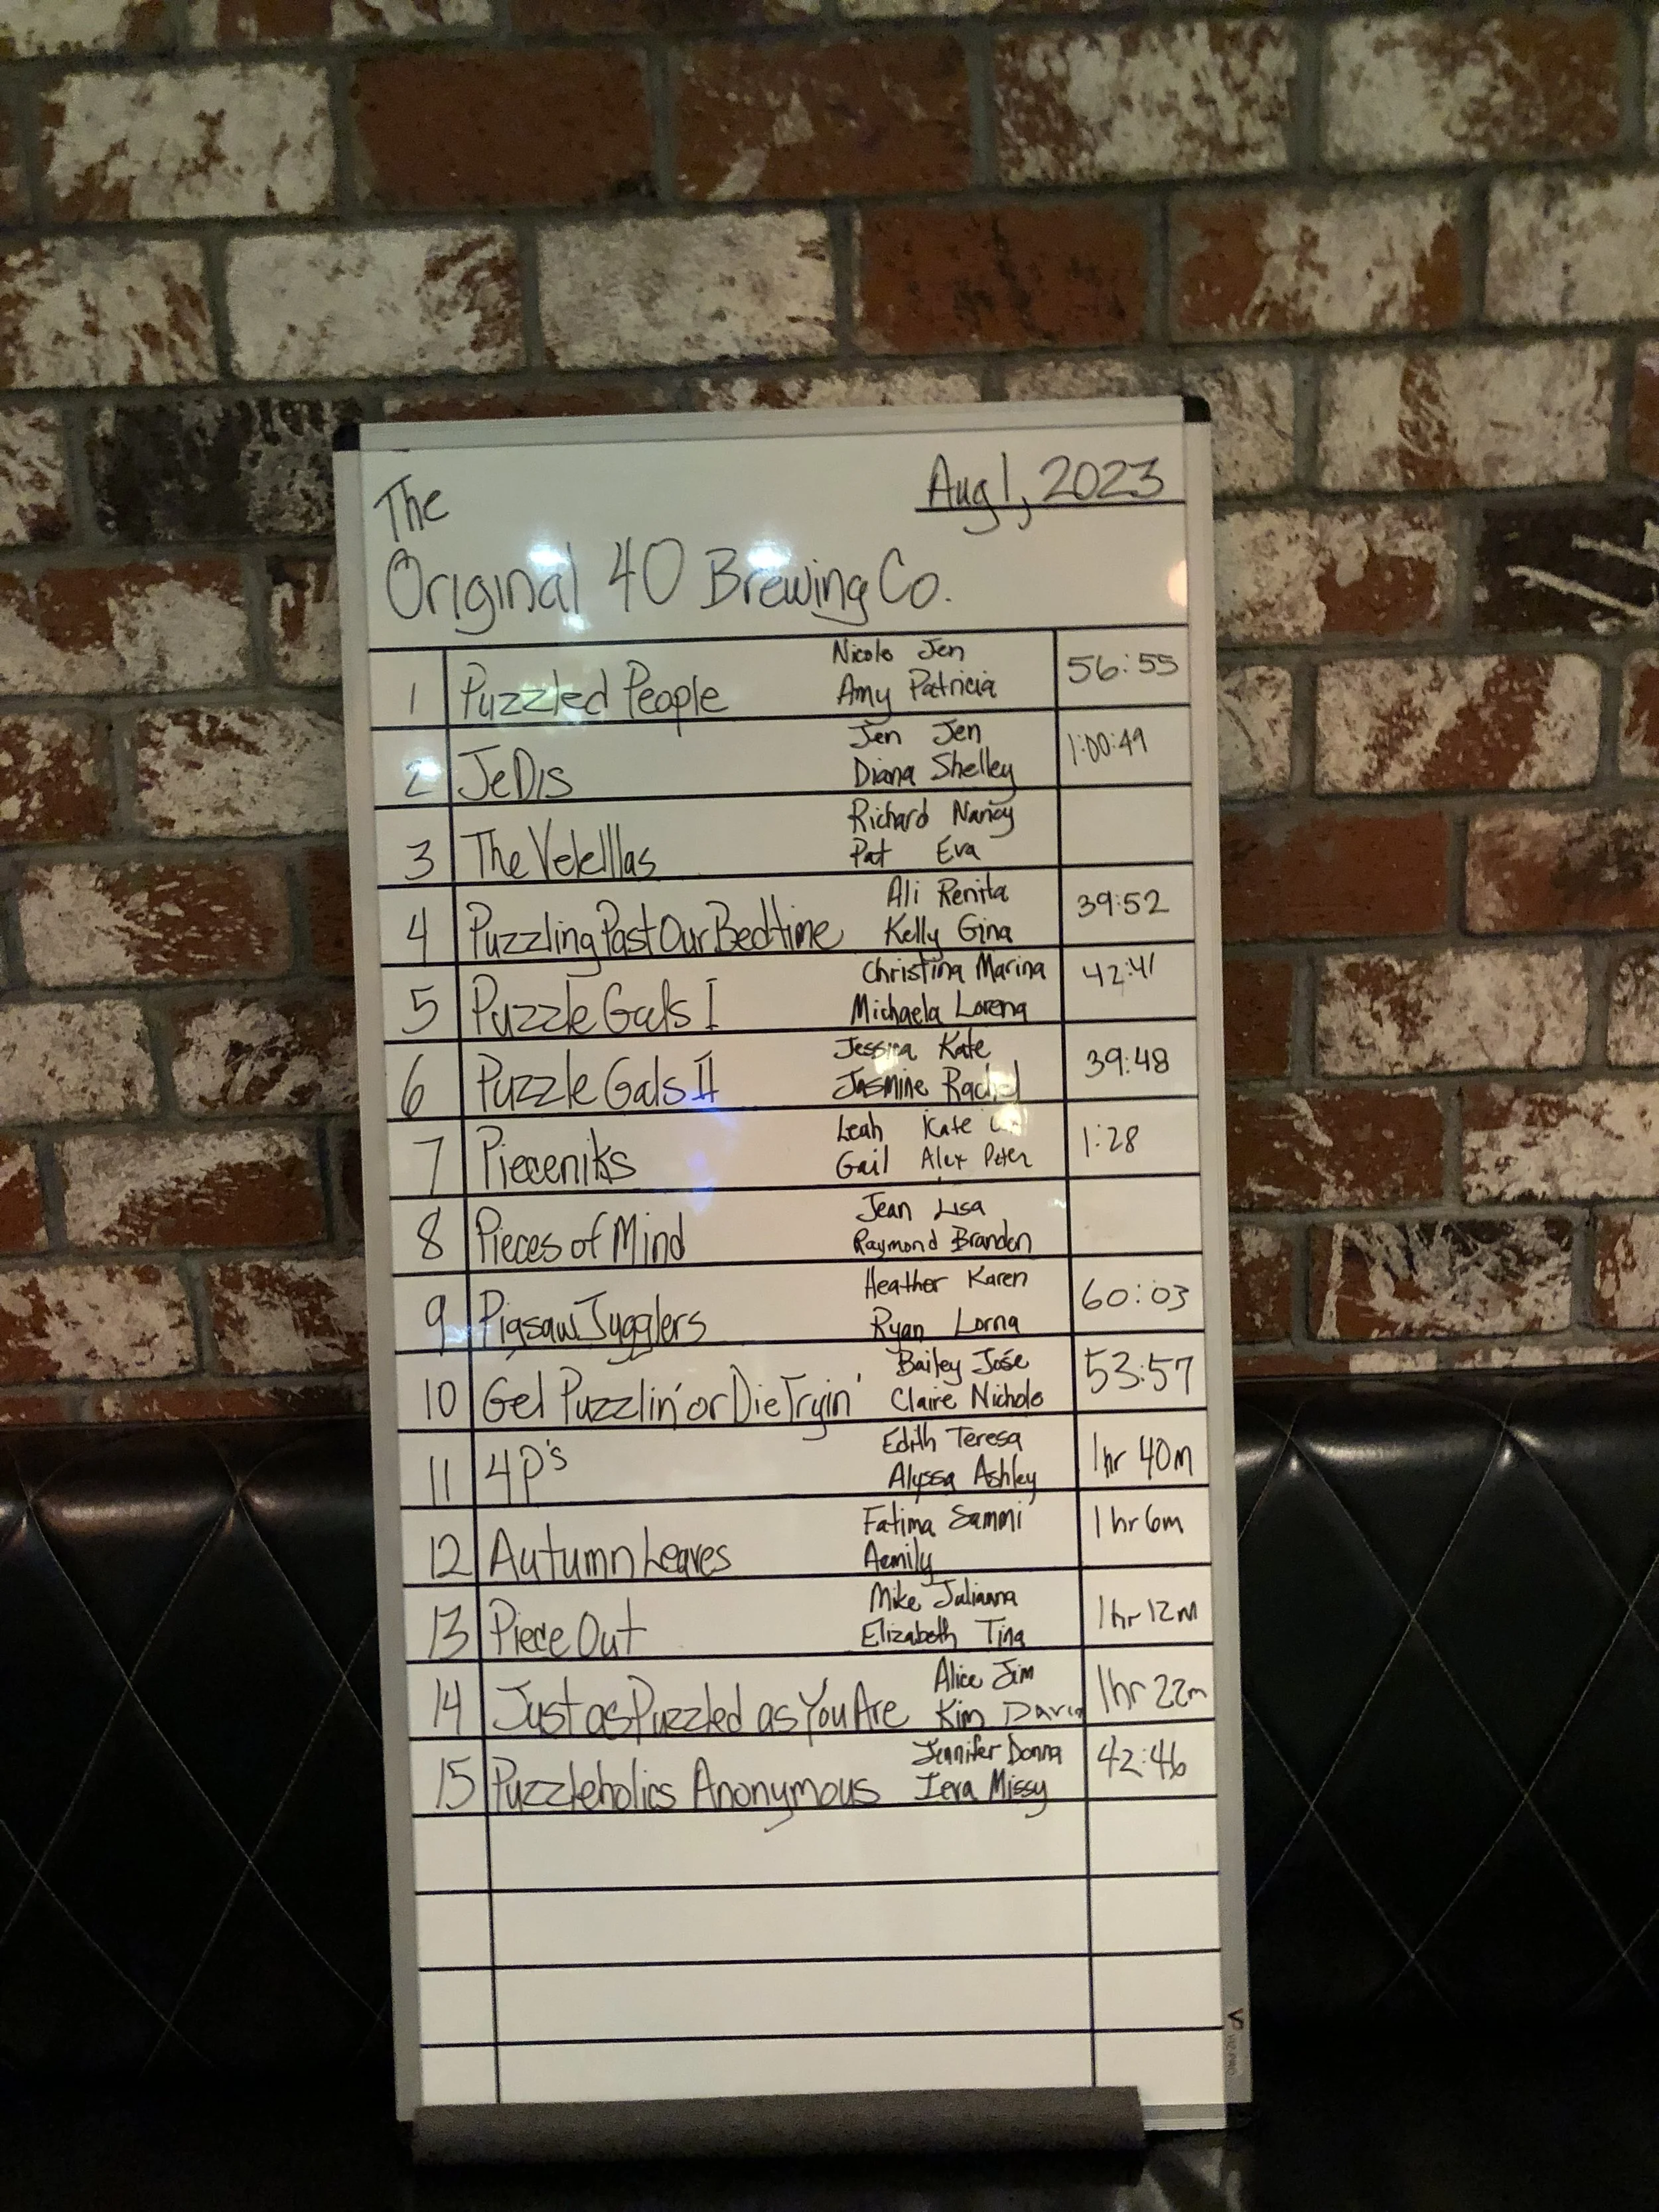 The
Aug 1, 2023
Original 40 Brewing Co.
Nicole Jen
1 Puzzled People Amy Patricia 56:55
Jen Jen
2 JeDIs Diana Shelley 1:00:49
Richard Nancy
3 The Velelllas Pat Eva
Ali Renita
4 Puzzling Past Our Bedtime Kelly Gina 39:52
Christina Marina
5 Puzzle Gals I Michaela Lorena 42:41
Jessica Kate
6 Puzzle Gals II Jasmine Rachel 39:48
Leah Kate
7 Pieceniks Gail Alex Peter 1:28
Jean Lisa
8 Pieces of Mind Raymond Brandon
Heather Karen
9 Pigsaw Jugglers Ryan Lorna 60:03
Bailey Jose
10 Get Puzzlin' or Die Tryin' Claire Nichole 53:57
Edith Teresa
11 4P's Alyssa Ashley 1hr 40m
Fatima Sammi
12 Autumn Leaves Aemily 1hr 6m
Mike Julianna
13 Piece Out Elizabeth Tina 1hr 12m
Alice Jim
14 Just as Puzzled as You Are Kim David 1hr 22m
Jennifer Donna
15 Puzzleholics Anonymous Ieva Missy 42:46